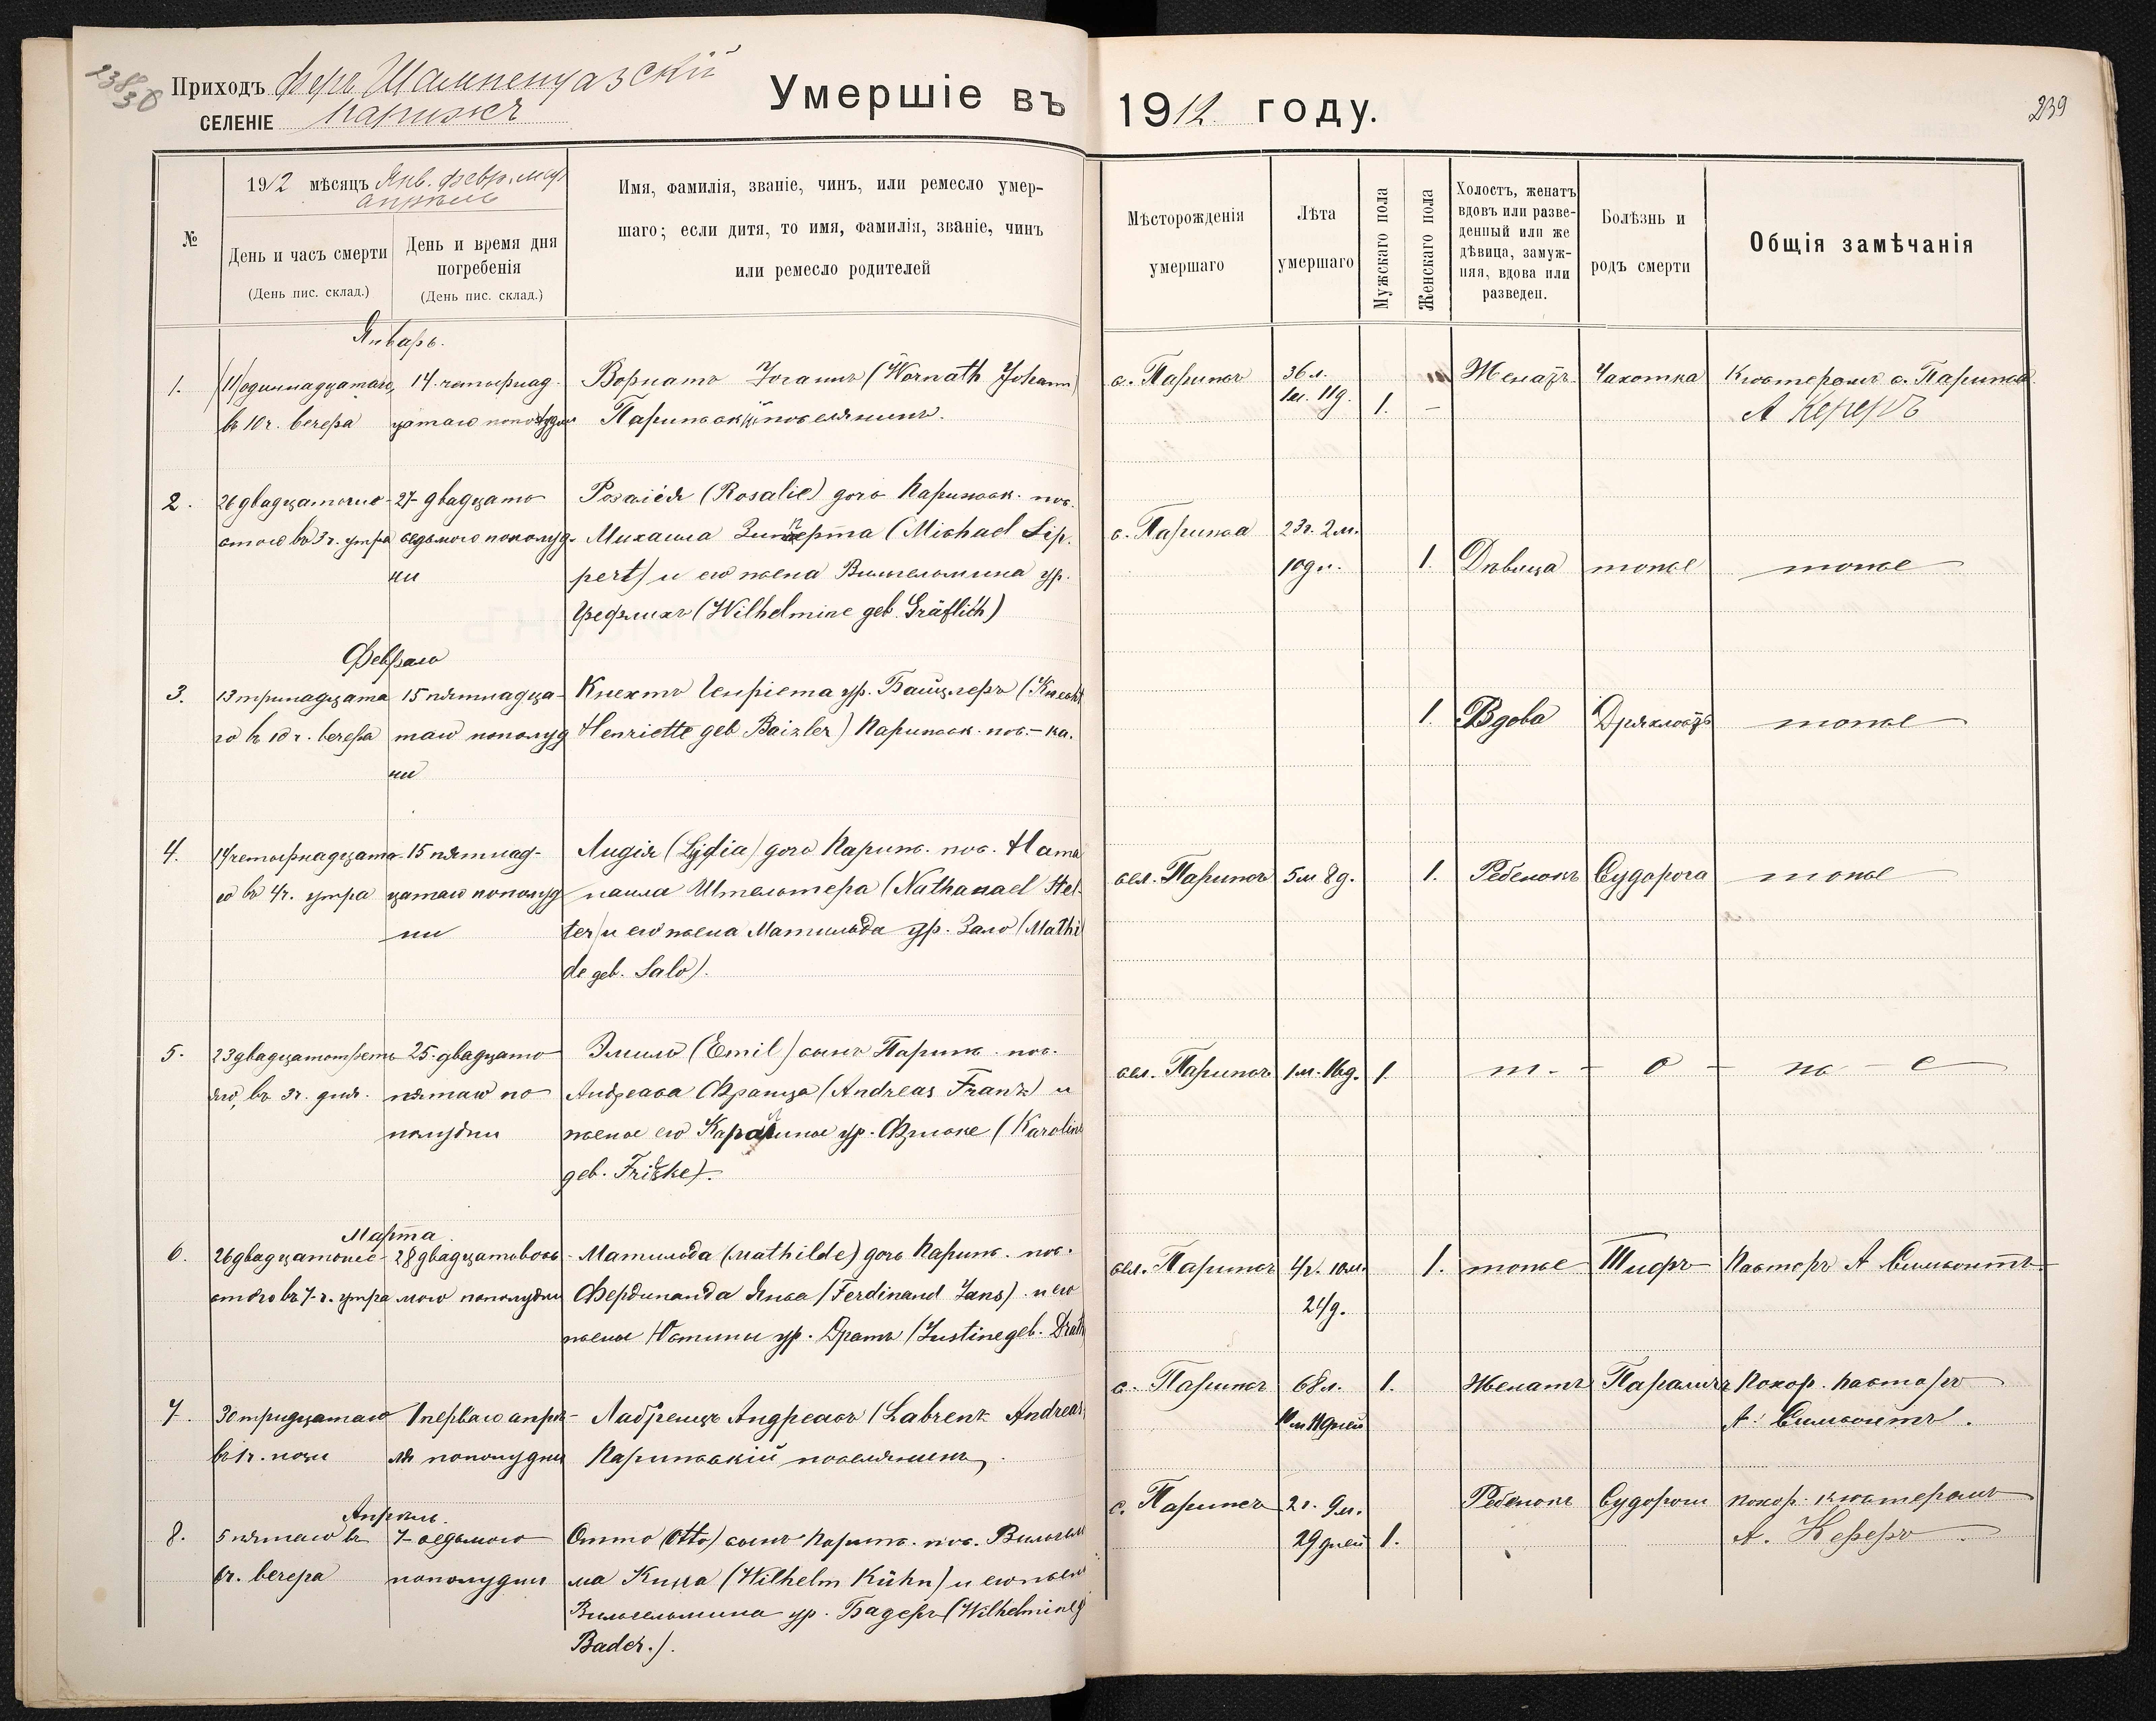 238
Приходъ Феръ Шампенуазскій
СЕЛЕНІЕ Парижъ
Умершіе въ 1912 году.
239
№
1912 мѣсяцъ Янв. февр. мар.
апрѣль
День и часъ смерти
(День пис. склад.)
День и время дня
погребенія
(День пис. склад.)
Имя, фамилія, званіе, чинъ, или ремесло умер-
шаго; если дитя, то имя, фамилія, званіе, чинъ
или ремесло родителей
Мѣсторожденія
умершаго
Лѣта
умершаго
Мужскаго пола
Женскаго пола
Холостъ, женатъ
вдовъ или разве-
денный или же
дѣвица, замуж-
няя, вдова или
разведен.
Болѣзнь и
родъ смерти
Общія замѣчанія
Январь.
1.
(11) одиннадцатаго,
въ 10 ч. вечера
14. четырнад-
цатаго пополудни
Ворнатъ Іоганнъ (Wornath Johann)
Парижскій поселянинъ.
с. Парижъ
36 л.
1м. 11д.
1.
–
Женатъ.
Чахотка
Кюстеромъ с. Парижа
А Кереръ
2.
26 двадцатоше-
стого въ 3 ч. утра
27 двадцато
седьмого пополуд-
ни
Розалія (Rosalie) дочь Парижск. пос.
Михаила Липперта (Michael Lip-
pert) и его жена Вильгельмина ур.
Грефлихъ (Wilhelmine geb. Gräflich)
с. Парижа
23г. 2м.
10дн.
1.
Дѣвица
тоже
тоже
Февраль
3.
13 тринадцата
го въ 10 ч. вечера
15 пятнадца-
таго пополуд
ни
Кнехтъ Генріета ур. Байцлеръ (Knecht
Henriette geb Baizler) Парижск. пос.-ка.
1.
Вдова
Дряхлость
тоже
4.
14 четырнадцата-
го въ 4 ч. утра
15 пятнад-
цатаго пополуд
ни
Лидія (Lydia) дочь Париж. пос. Ната
наила Штельтера (Nathanael Stel-
ter) и его жена Матильда ур. Зало (Mathil
de geb. Salo).
сел. Парижъ
5м 8д.
1.
Ребенокъ
Судорога
тоже
5.
23 двадцатотреть
яго, въ 3 ч. дня.
25. двадцато
пятаго по
полудни
Эмиль (Emil) сынъ Париж. пос.
Андреаса Франца (Andreas Franz) и
жены его Каролины ур. Фриске (Karoline
geb. Friske).
сел. Парижъ
1м. 16д.
1.
т. - о - ж - е
Марта.
6.
26 двадцатошес-
стого въ 7 ч. утра
28 двадцатовось-
мого пополудни
Матильда (Mathilde) дочь Париж. пос.
Фердинанда Янса (Ferdinand Jans) и его
жены Юстины ур. Дратъ (Justine geb. Drath
сел. Парижъ
4г. 10м.
21д.
1.
тоже
Тифъ
Пасторъ А
7.
30 тридцатаго
въ 1 ч. ночи
1 перваго апрѣ-
ля пополудни
Лабренцъ Андреасъ (Labrenz Andreas)
Парижскій поселянинъ.
с. Парижъ
68 л.
1.
Женатъ
Параличъ
Похор. пасторъ
А.
Апрѣль.
8.
5 пятаго въ
6 ч. вечера
7 седьмого
пополудни
Отто (Otto) сынъ Париж. пос. Вильгель
ма Кина (Wilhelm Kühn) и его жены
Вильгельмина ур. Бадеръ (Wilhelmine g
Bader.).
с. Парижъ
2г. 9м.
29 дней
1.
Ребенокъ
Судороги
похор. кюстеромъ
А. Кереръ